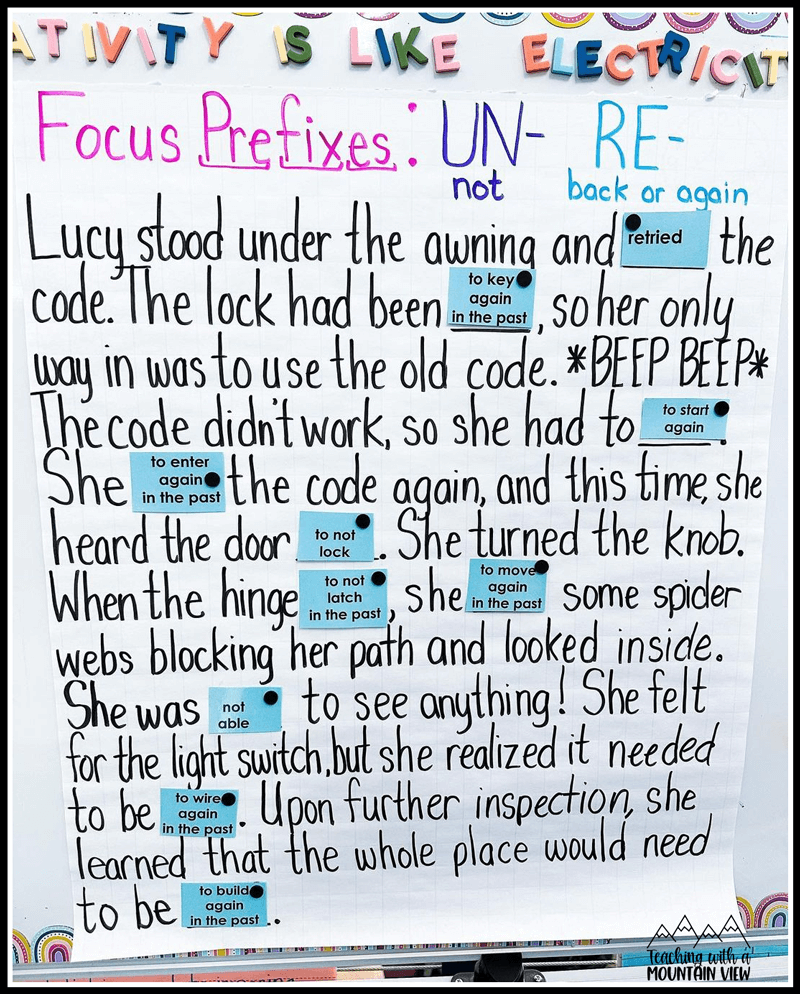 ATIVITY IS LIKE ELECTRICIT
Focus Prefixes: UN- RE-
not back or again
Lucy stood under the awning and retried the
code. The lock had been to key again in the past, so her only
way in was to use the old code. *BEEP BEEP*
The code didn't work, so she had to to start again.
She to enter again in the past the code again, and this time, she
heard the door to not lock. She turned the knob.
When the hinge to not latch in the past, she to move again in the past some spider
webs blocking her path and looked inside.
She was not able to see anything! She felt
for the light switch, but she realized it needed
to be to wire again in the past. Upon further inspection, she
learned that the whole place would need
to be to build again in the past..
Teaching with a
MOUNTAIN VIEW